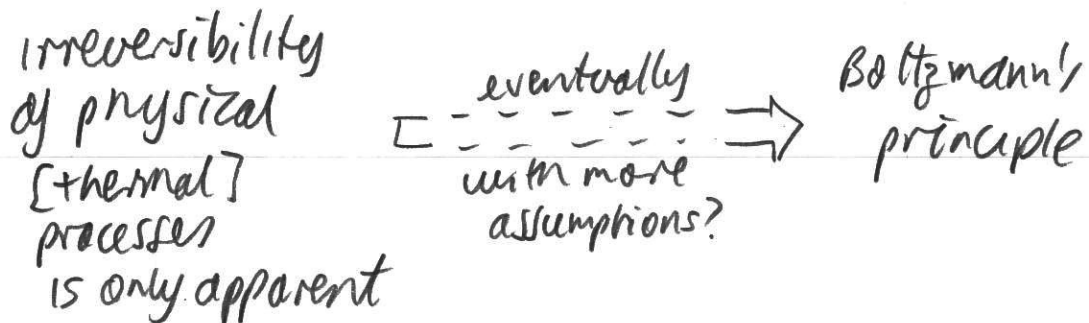 irreversibility
of physical
[thermal]
processes
is only apparent
eventually
with more
assumptions?
Boltzmann's
principle